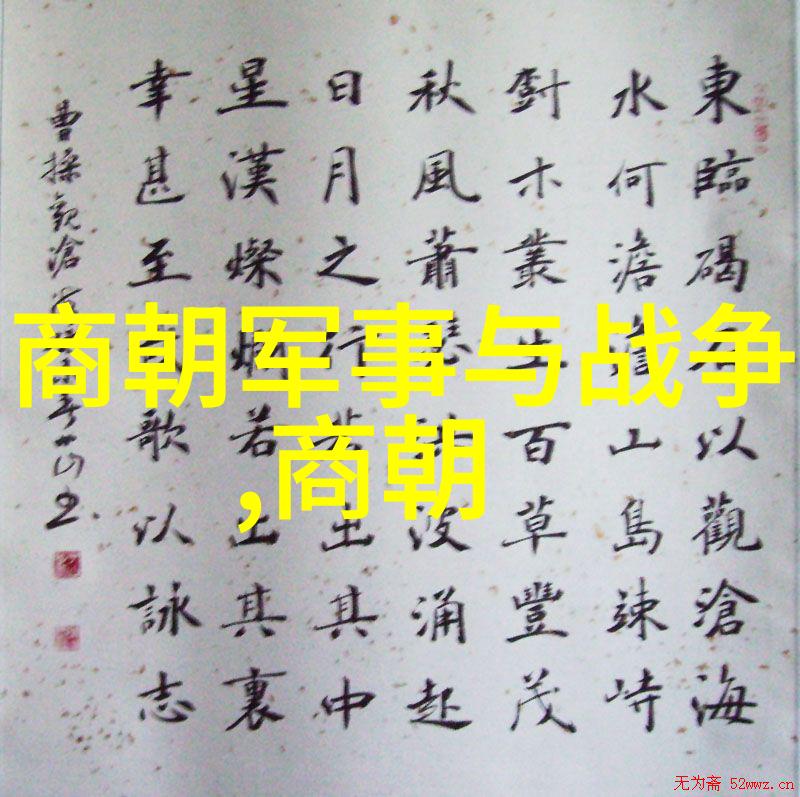 商朝军事与战争
,商朝
東臨碣石以觀滄海
水何澹澹山島竦峙
木叢生百草豐茂
秋風蕭瑟洪波涌起
日月之行若出其中
星漢燦爛若出其裏
幸甚至哉歌以詠志
曹操觀滄
无为斋 52wwz.cn